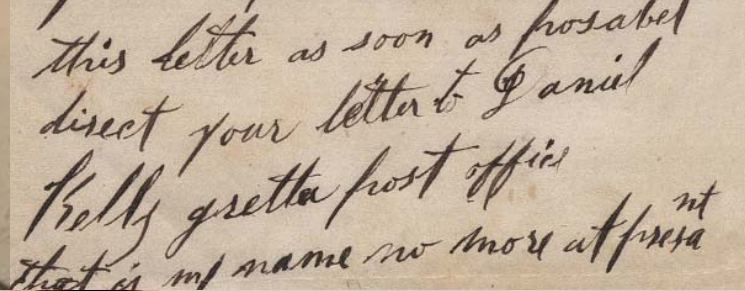 this letter as soon as posabel
direct your letter to Daniel
Kelly gretta post office
that is my name no more at presant